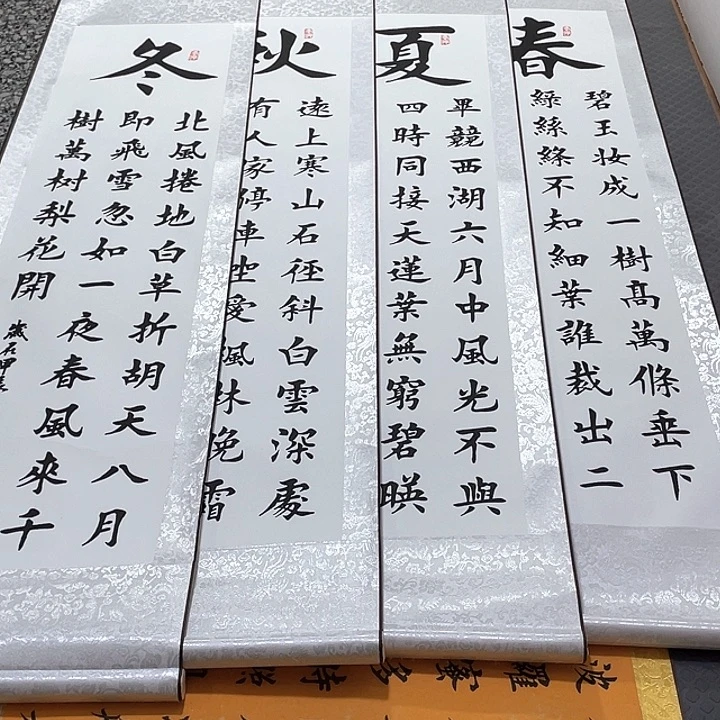 春
碧玉妆成一樹髙萬條垂下
緑絲絛不知細葉誰裁出二
夏
畢競西湖六月中風光不與
四時同接天蓮葉無窮碧暎
秋
遠上寒山石徑斜白雲深處
有人家停車坐愛楓林晚霜
冬
北風捲地白草折胡天八月
即飛雪忽如一夜春風來千
樹萬树梨花開
歲在甲辰
波羅蜜多時照